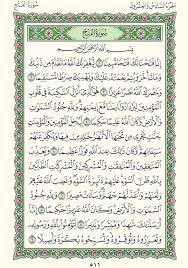 الجزء السادس والعشرون
سورة الفتح
سُورَةُ الفَتْحِ
بِسْمِ ٱللَّهِ ٱلرَّحْمَٰنِ ٱلرَّحِيمِ
إِنَّا فَتَحْنَا لَكَ فَتْحًا مُّبِينًا ١ لِّيَغْفِرَ لَكَ ٱللَّهُ مَا تَقَدَّمَ مِن ذَنۢبِكَ
وَمَا تَأَخَّرَ وَيُتِمَّ نِعْمَتَهُۥ عَلَيْكَ وَيَهْدِيَكَ صِرَٰطًا مُّسْتَقِيمًا ٢
وَيَنصُرَكَ ٱللَّهُ نَصْرًا عَزِيزًا ٣ هُوَ ٱلَّذِىٓ أَنزَلَ ٱلسَّكِينَةَ
فِى قُلُوبِ ٱلْمُؤْمِنِينَ لِيَزْدَادُوٓا۟ إِيمَٰنًا مَّعَ إِيمَٰنِهِمْ ۗ وَلِلَّهِ جُنُودُ ٱلسَّمَٰوَٰتِ
وَٱلْأَرْضِ ۚ وَكَانَ ٱللَّهُ عَلِيمًا حَكِيمًا ٤ لِّيُدْخِلَ ٱلْمُؤْمِنِينَ وَٱلْمُؤْمِنَٰتِ
جَنَّٰتٍ تَجْرِى مِن تَحْتِهَا ٱلْأَنْهَٰرُ خَٰلِدِينَ فِيهَا وَيُكَفِّرَ عَنْهُمْ
سَيِّـَٔاتِهِمْ ۚ وَكَانَ ذَٰلِكَ عِندَ ٱللَّهِ فَوْزًا عَظِيمًا ٥ وَيُعَذِّبَ
ٱلْمُنَٰفِقِينَ وَٱلْمُنَٰفِقَٰتِ وَٱلْمُشْرِكِينَ وَٱلْمُشْرِكَٰتِ ٱلظَّآنِّينَ
بِٱللَّهِ ظَنَّ ٱلسَّوْءِ ۚ عَلَيْهِمْ دَآئِرَةُ ٱلسَّوْءِ ۖ وَغَضِبَ ٱللَّهُ عَلَيْهِمْ
وَلَعَنَهُمْ وَأَعَدَّ لَهُمْ جَهَنَّمَ ۖ وَسَآءَتْ مَصِيرًا ٦ وَلِلَّهِ جُنُودُ ٱلسَّمَٰوَٰتِ
وَٱلْأَرْضِ ۚ وَكَانَ ٱللَّهُ عَزِيزًا حَكِيمًا ٧ إِنَّآ أَرْسَلْنَٰكَ
شَٰهِدًا وَمُبَشِّرًا وَنَذِيرًا ٨ لِّتُؤْمِنُوا۟ بِٱللَّهِ وَرَسُولِهِۦ
وَتُعَزِّرُوهُ وَتُوَقِّرُوهُ وَتُسَبِّحُوهُ بُكْرَةً وَأَصِيلًا ٩
٥١١